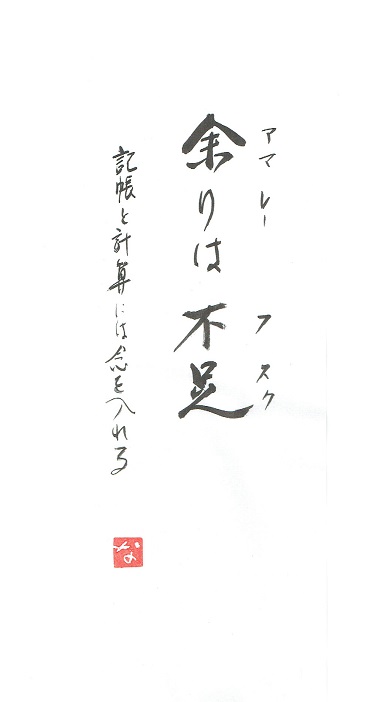 アマレー フスク
余りは不足
記帳と計算には念を入れる
な